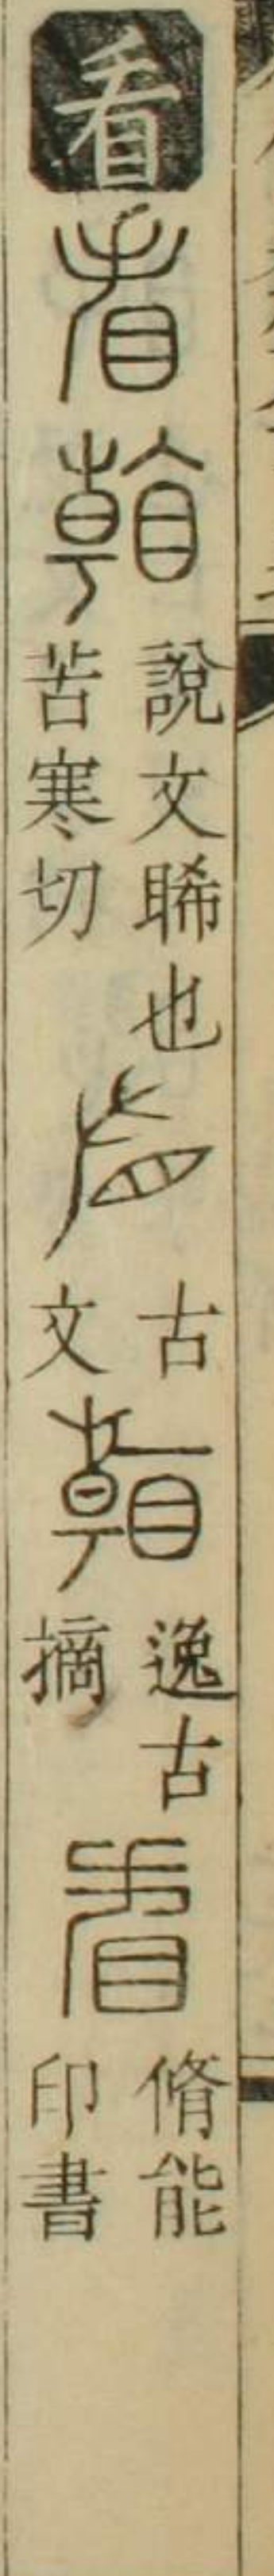 看 看 𥍉 說文睎也苦寒切 看 古文 𥍉 逸古摘 看 脩能印書